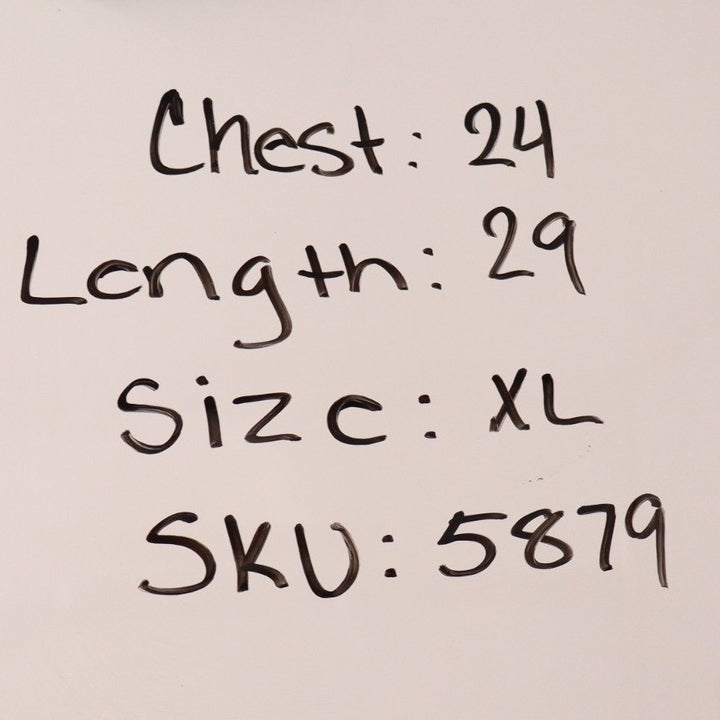 Chest: 24
Length: 29
Size: XL
SKU: 5879